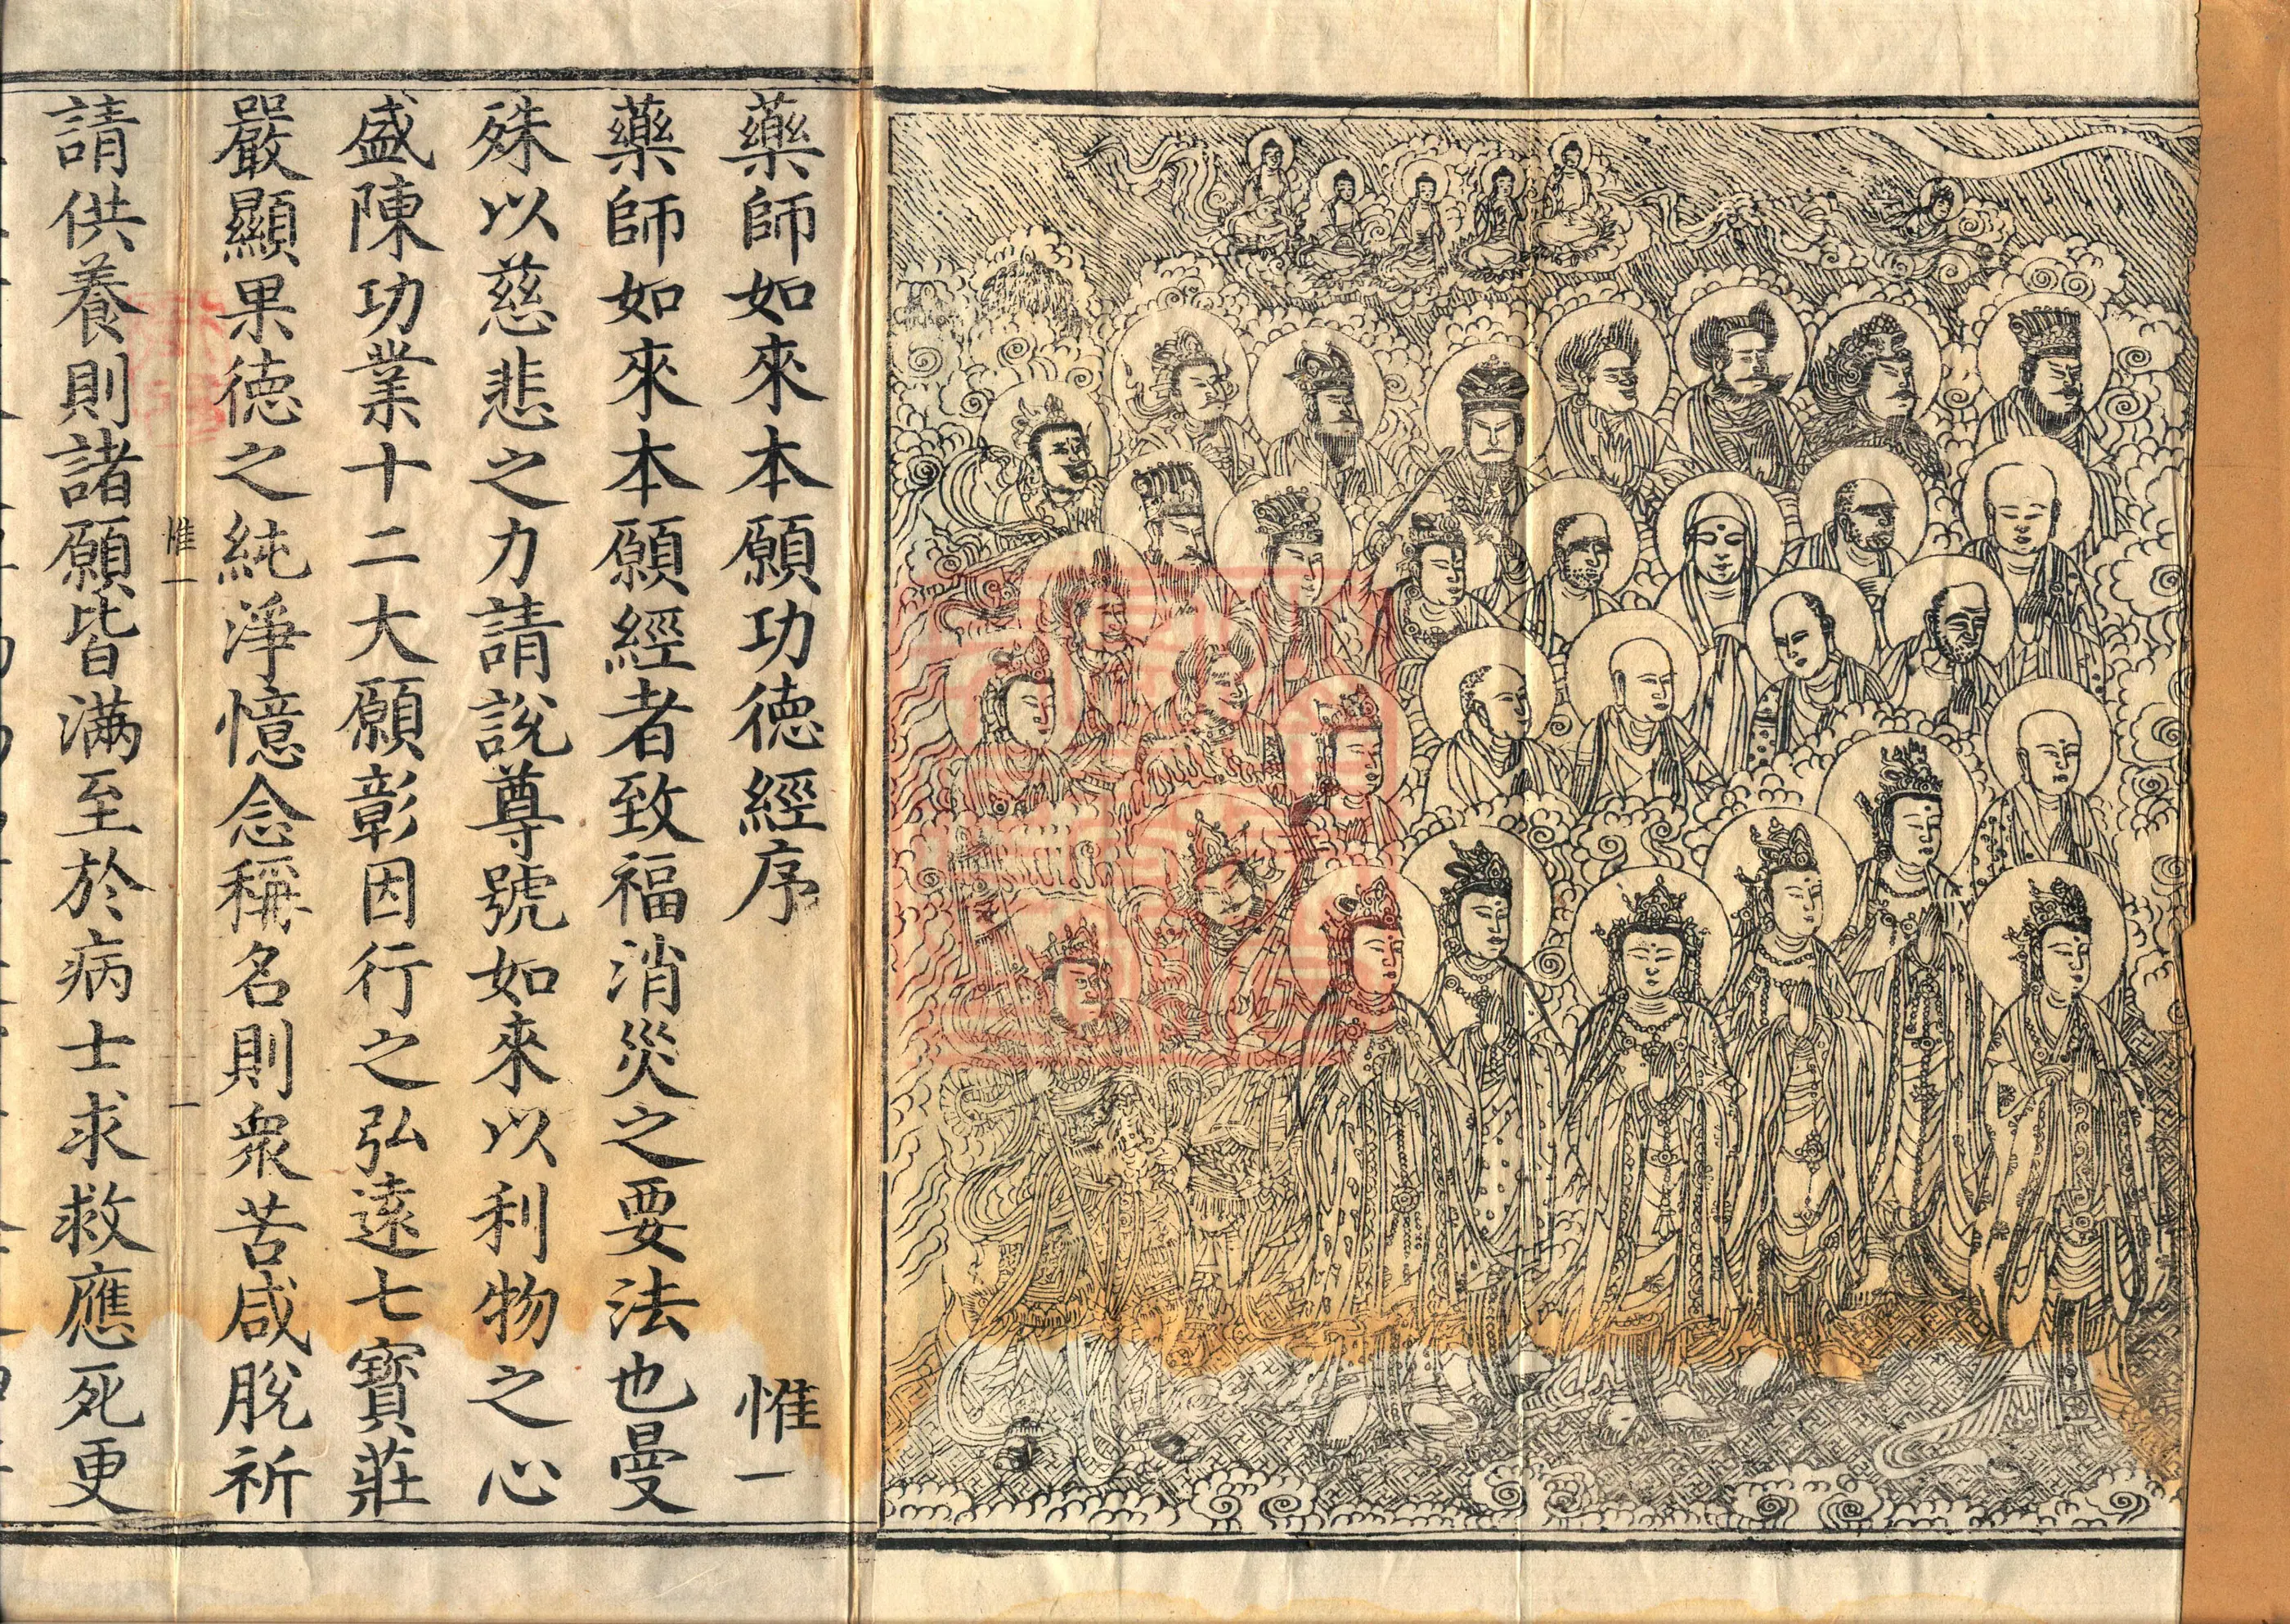 藥師如來本願功徳經序 惟一
藥師如來本願經者致福消災之要法也曼
殊以慈悲之力請說尊號如來以利物之心
盛陳功業十二大願彰因行之弘遠七寶莊
嚴顯果徳之純淨憶念稱名則衆苦咸脫祈
惟一 一
請供養則諸願皆滿至於病士求救應死更